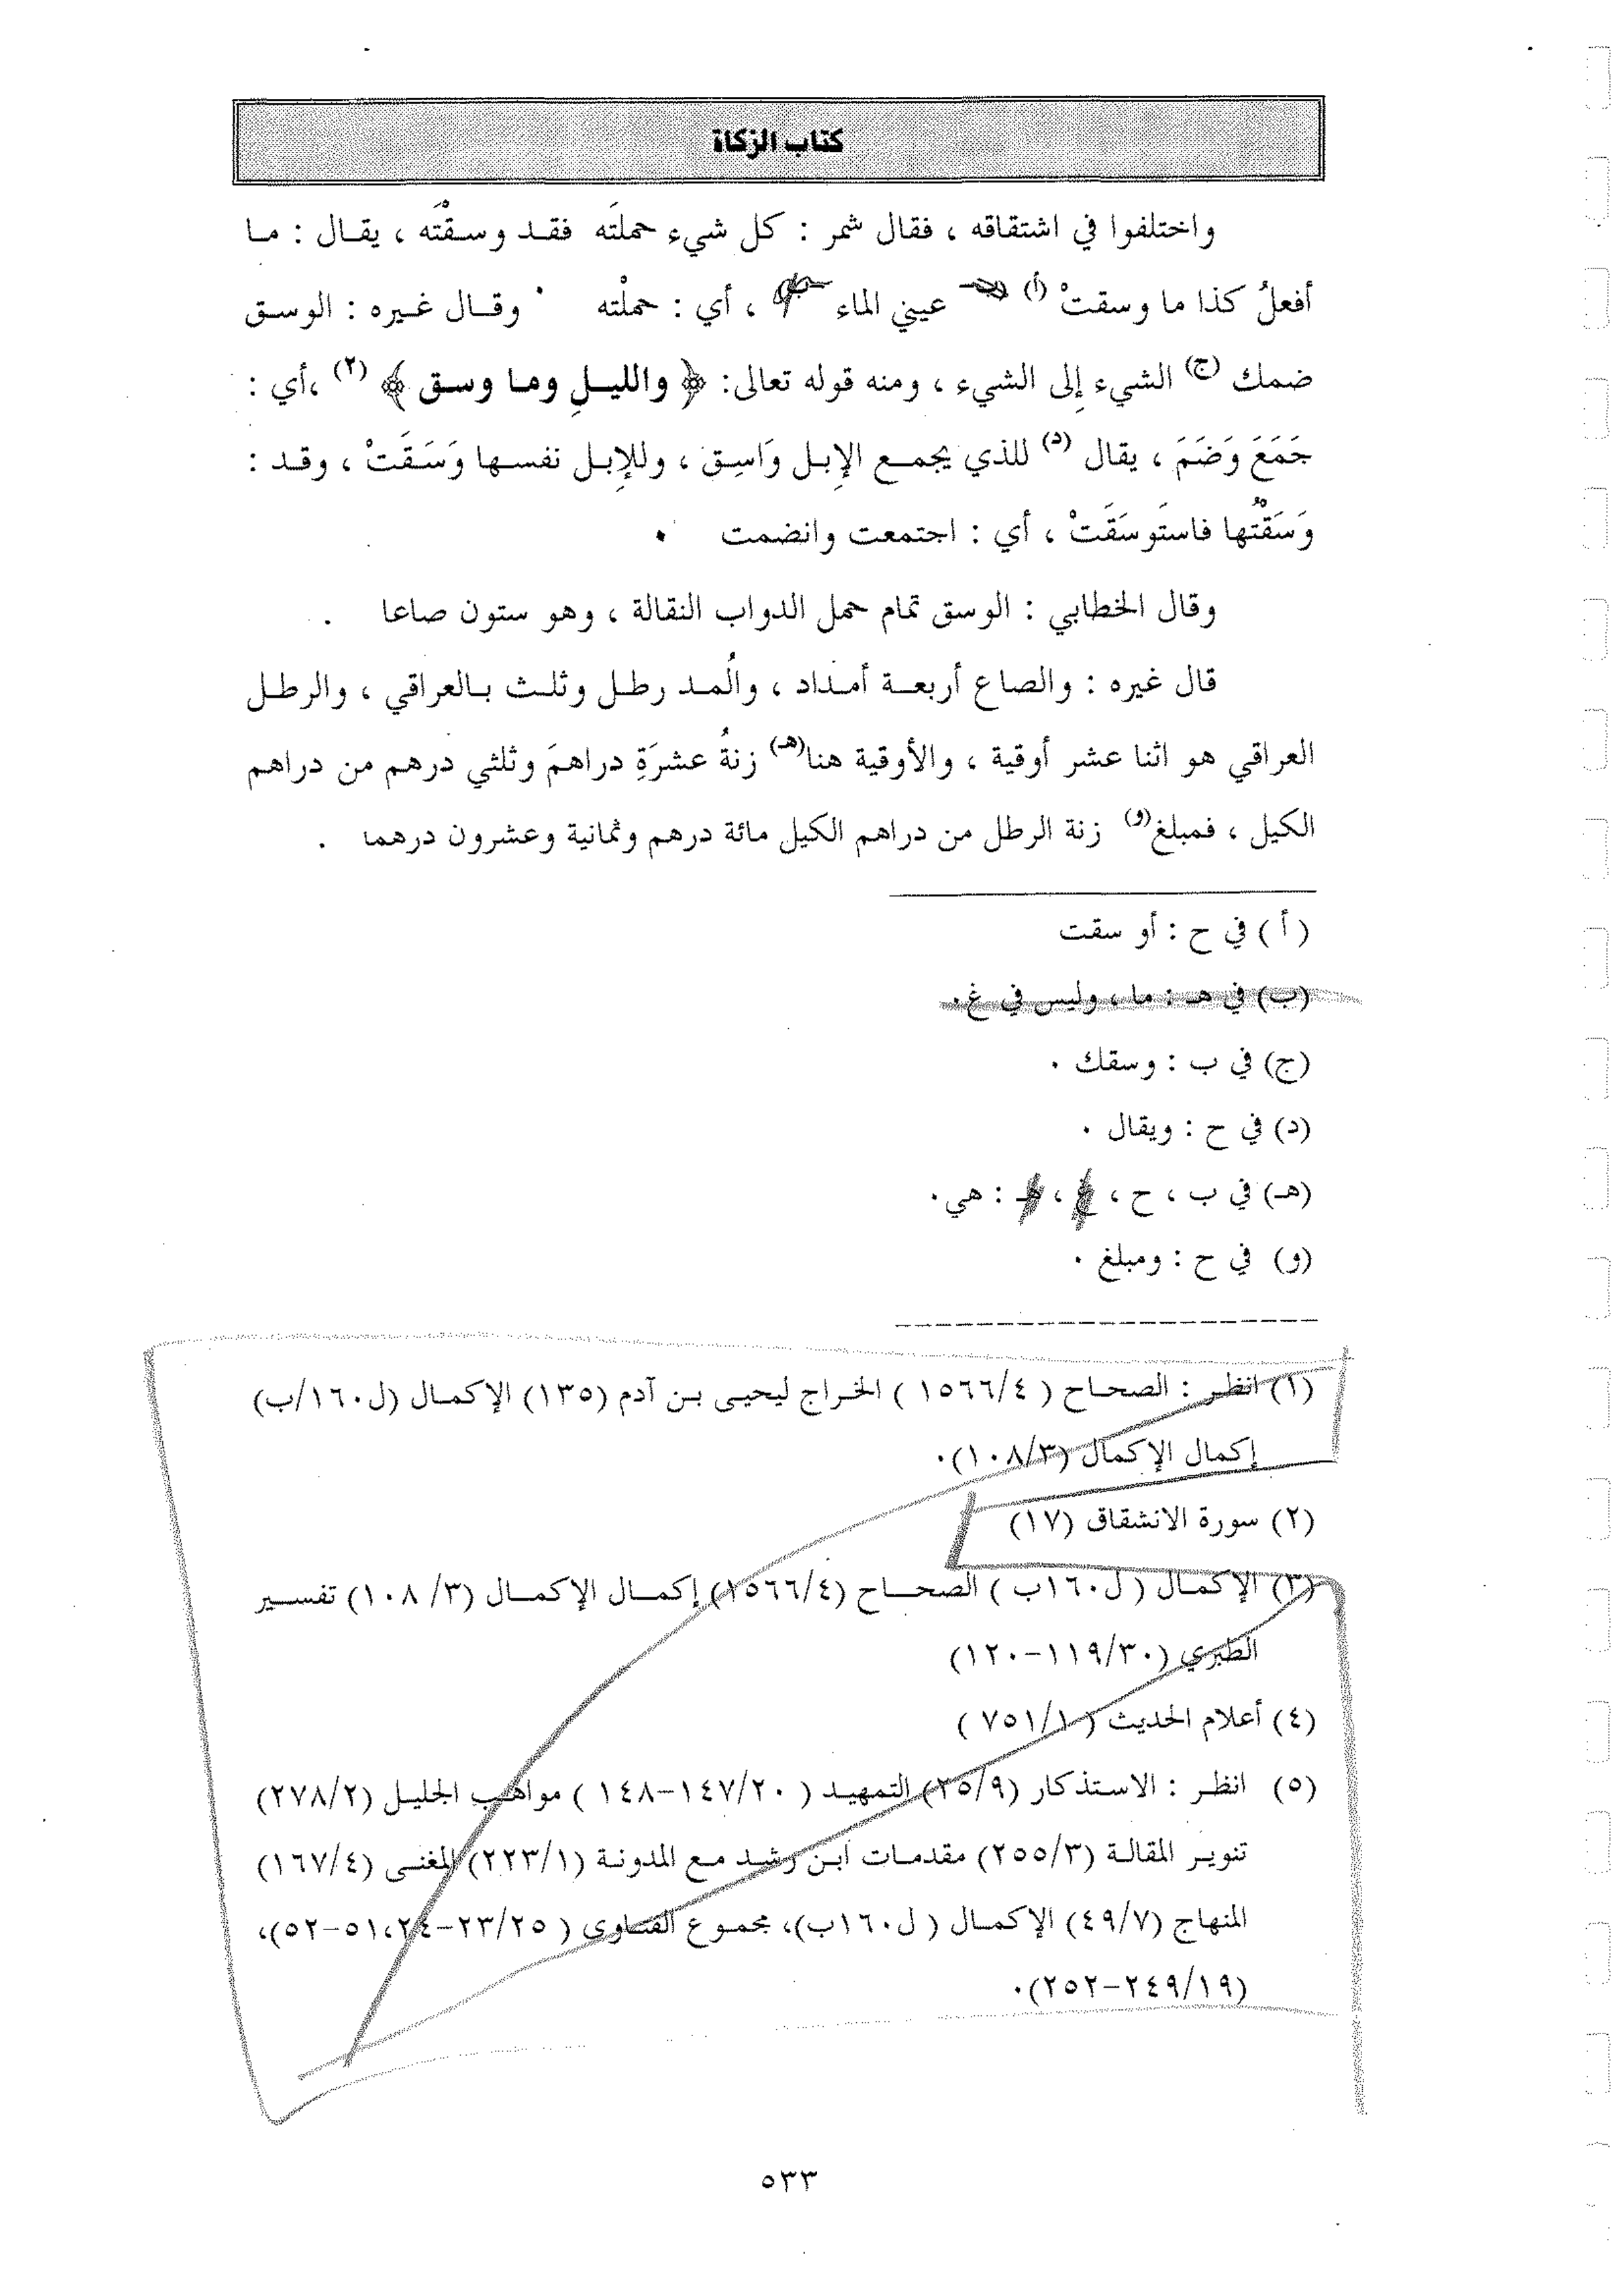 كتاب الزكاة
واختلفوا في اشتقاقه ، فقال شمر : كل شيء حملتَه فقد وسقْتَه ، يقال : ما
أفعلُ كذا ما وسقتْ (أ) عيني الماء ، أي : حملْته . وقال غيره : الوسق
ضمك (ج) الشيء إلى الشيء ، ومنه قوله تعالى: ﴿ والليلِ وما وسق ﴾ (٢) ،أي :
جَمَعَ وَضَمَ ، يقال (د) للذي يجمع الإبل وَاسِق ، وللإبل نفسها وَسَقَتْ ، وقد :
وَسَقْتُها فاستَوسَقَتْ ، أي : اجتمعت وانضمت .
وقال الخطابي : الوسق تمام حمل الدواب النقالة ، وهو ستون صاعا .
قال غيره : والصاع أربعة أمداد ، والُمد رطل وثلث بالعراقي ، والرطل
العراقي هو اثنا عشر أوقية ، والأوقية هنا(هـ) زنةُ عشرَةِ دراهمَ وثلثي درهم من دراهم
الكيل ، فمبلغ(و) زنة الرطل من دراهم الكيل مائة درهم وثمانية وعشرون درهما .
( أ ) في ح : أو سقت
(ب) في هـ : ما ، وليس في غ.
(ج) في ب : وسقك .
(د) في ح : ويقال .
(هـ) في ب ، ح ، غ ، هـ : هي.
(و) في ح : ومبلغ .
(١) انظر : الصحاح ( ١٥٦٦/٤ ) الخراج ليحيى بن آدم (١٣٥) الإكمال (ل١٦٠/ب)
إكمال الإكمال (١٠٨/٣).
(٢) سورة الانشقاق (١٧)
(٣) الإكمال ( ل١٦٠ب ) الصحاح (١٥٦٦/٤) إكمال الإكمال (٣/ ١٠٨) تفسير
الطبري (١١٩/٣٠-١٢٠)
(٤) أعلام الحديث ( ٧٥١/١ )
(٥) انظر : الاستذكار (٢٥/٩) التمهيد ( ١٤٧/٢٠-١٤٨ ) مواهب الجليل (٢٧٨/٢)
تنوير المقالة (٢٥٥/٣) مقدمات ابن رشد مع المدونة (٢٢٣/١) المغنى (١٦٧/٤)
المنهاج (٤٩/٧) الإكمال ( ل١٦٠ب)، مجموع الفتاوى ( ٢٣/٢٥-٥١،٢٤-٥٢)،
(٢٤٩/١٩-٢٥٢).
٥٣٣